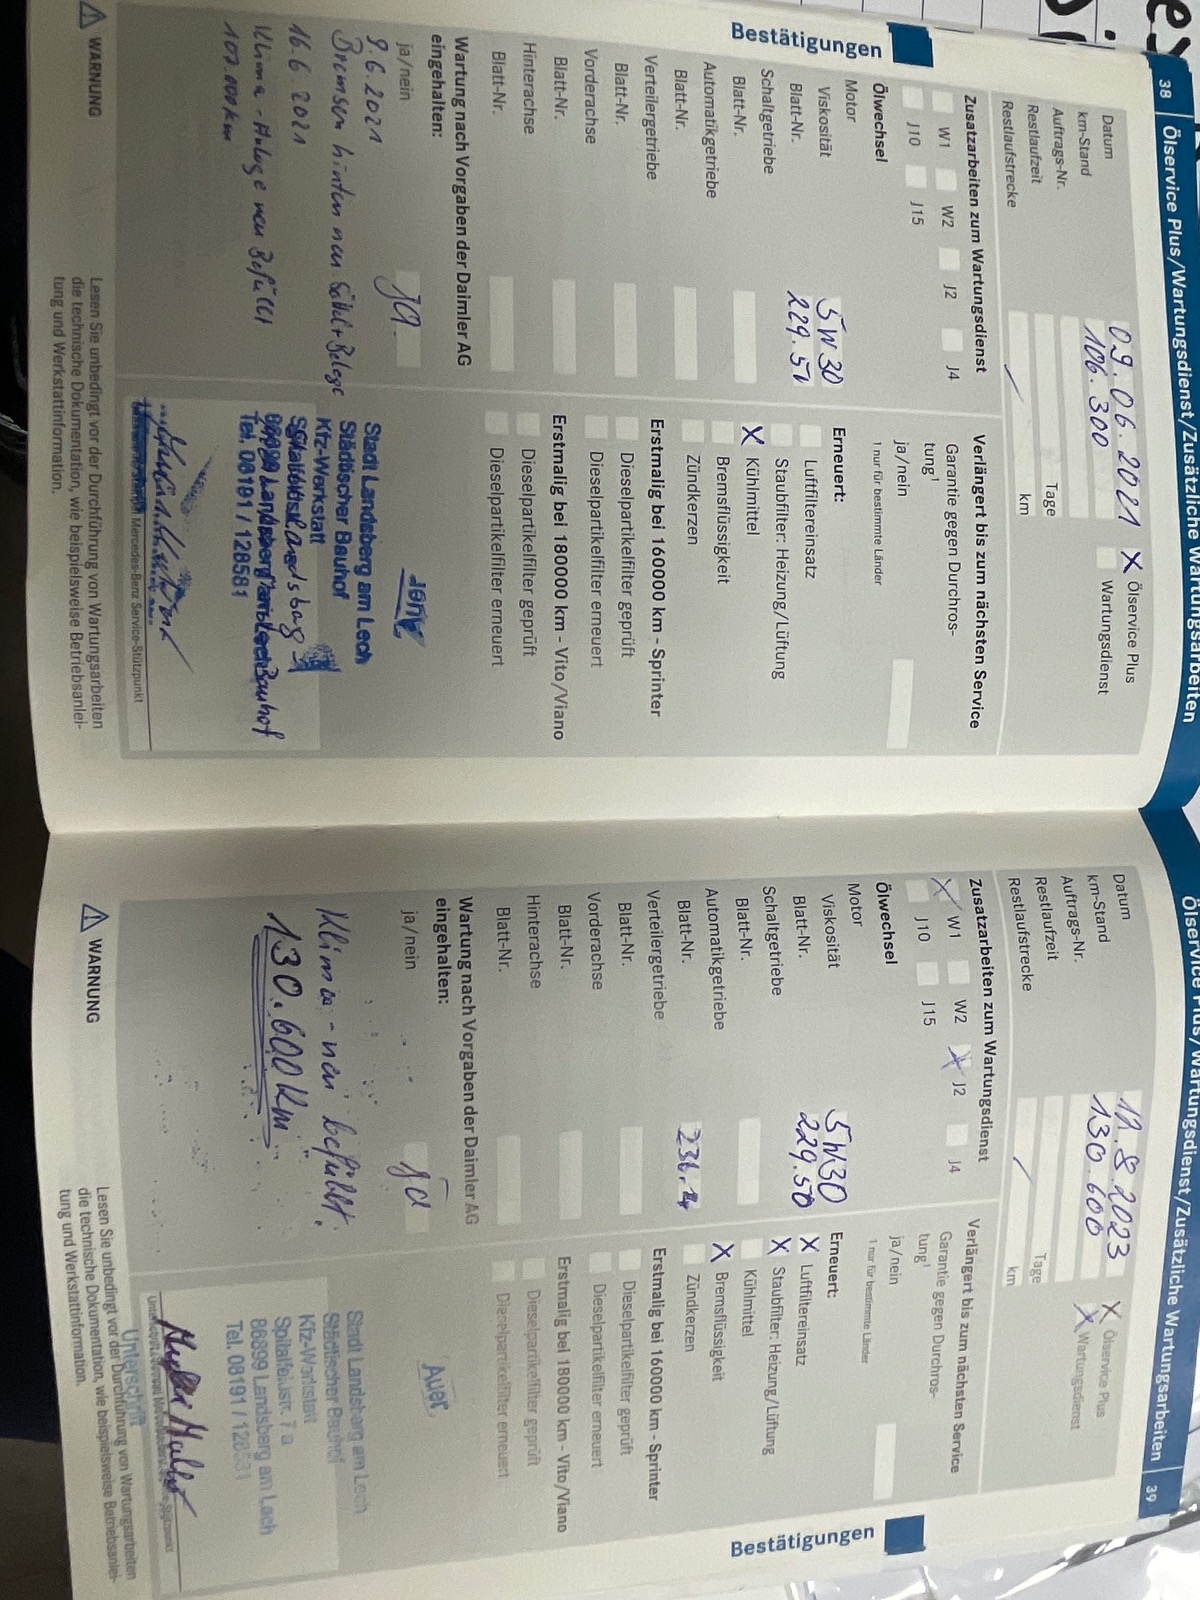 38 Ölservice Plus/Wartungsdienst/Zusätzliche Wartungsarbeiten
Bestätigungen
Datum 09.06.2021
km-Stand 106.300
Auftrags-Nr.
Restlaufzeit Tage
Restlaufstrecke km
X Ölservice Plus
Wartungsdienst
Zusatzarbeiten zum Wartungsdienst
W1 W2 J2 J4
J10 J15
Verlängert bis zum nächsten Service
Garantie gegen Durchros-
tung¹
ja/nein
1 nur für bestimmte Länder
Ölwechsel
Motor
Viskosität 5W30
Blatt-Nr. 229.51
Schaltgetriebe
Blatt-Nr.
Automatikgetriebe
Blatt-Nr.
Verteilergetriebe
Blatt-Nr.
Vorderachse
Blatt-Nr.
Hinterachse
Blatt-Nr.
Erneuert:
Luftfiltereinsatz
Staubfilter: Heizung/Lüftung
X Kühlmittel
Bremsflüssigkeit
Zündkerzen
Erstmalig bei 160000 km - Sprinter
Dieselpartikelfilter geprüft
Dieselpartikelfilter erneuert
Erstmalig bei 180000 km - Vito/Viano
Dieselpartikelfilter geprüft
Dieselpartikelfilter erneuert
Wartung nach Vorgaben der Daimler AG
eingehalten:
ja/nein ja
9.6.2021
Bremsen hinten neu Sättel + Beläge
16.6.2021
Klima-Anlage neu Befüllt
107.000km
Stadt Landsberg am Lech
Städtischer Bauhof
Kfz-Werkstatt
Tel. 08191 / 128581
Mercedes-Benz Service-Stützpunkt
WARNUNG
Lesen Sie unbedingt vor der Durchführung von Wartungsarbeiten
die technische Dokumentation, wie beispielsweise Betriebsanlei-
tung und Werkstattinformation.
Ölservice Plus/Wartungsdienst/Zusätzliche Wartungsarbeiten 39
Bestätigungen
Datum 17.8.2023
km-Stand 130.600
Auftrags-Nr.
Restlaufzeit Tage
Restlaufstrecke km
X Ölservice Plus
X Wartungsdienst
Zusatzarbeiten zum Wartungsdienst
X W1 W2 X J2 J4
J10 J15
Verlängert bis zum nächsten Service
Garantie gegen Durchros-
tung¹
ja/nein
1 nur für bestimmte Länder
Ölwechsel
Motor
Viskosität 5W30
Blatt-Nr. 229.50
Schaltgetriebe
Blatt-Nr.
Automatikgetriebe
Blatt-Nr.
Verteilergetriebe
Blatt-Nr.
Vorderachse
Blatt-Nr.
Hinterachse
Blatt-Nr.
Erneuert:
X Luftfiltereinsatz
X Staubfilter: Heizung/Lüftung
Kühlmittel
X Bremsflüssigkeit
Zündkerzen
Erstmalig bei 160000 km - Sprinter
Dieselpartikelfilter geprüft
Dieselpartikelfilter erneuert
Erstmalig bei 180000 km - Vito/Viano
Dieselpartikelfilter geprüft
Dieselpartikelfilter erneuert
Wartung nach Vorgaben der Daimler AG
eingehalten:
ja/nein ja
Klima - neu befüllt.
130.600 Km
Auer
Stadt Landsberg am Lech
Städtischer Bauhof
Kfz-Werkstatt
Spitalfeldstr. 7 a
86899 Landsberg am Lech
Tel. 08191 /
Unterschrift
WARNUNG
Lesen Sie unbedingt vor der Durchführung von Wartungsarbeiten
die technische Dokumentation, wie beispielsweise Betriebsanlei-
tung und Werkstattinformation.